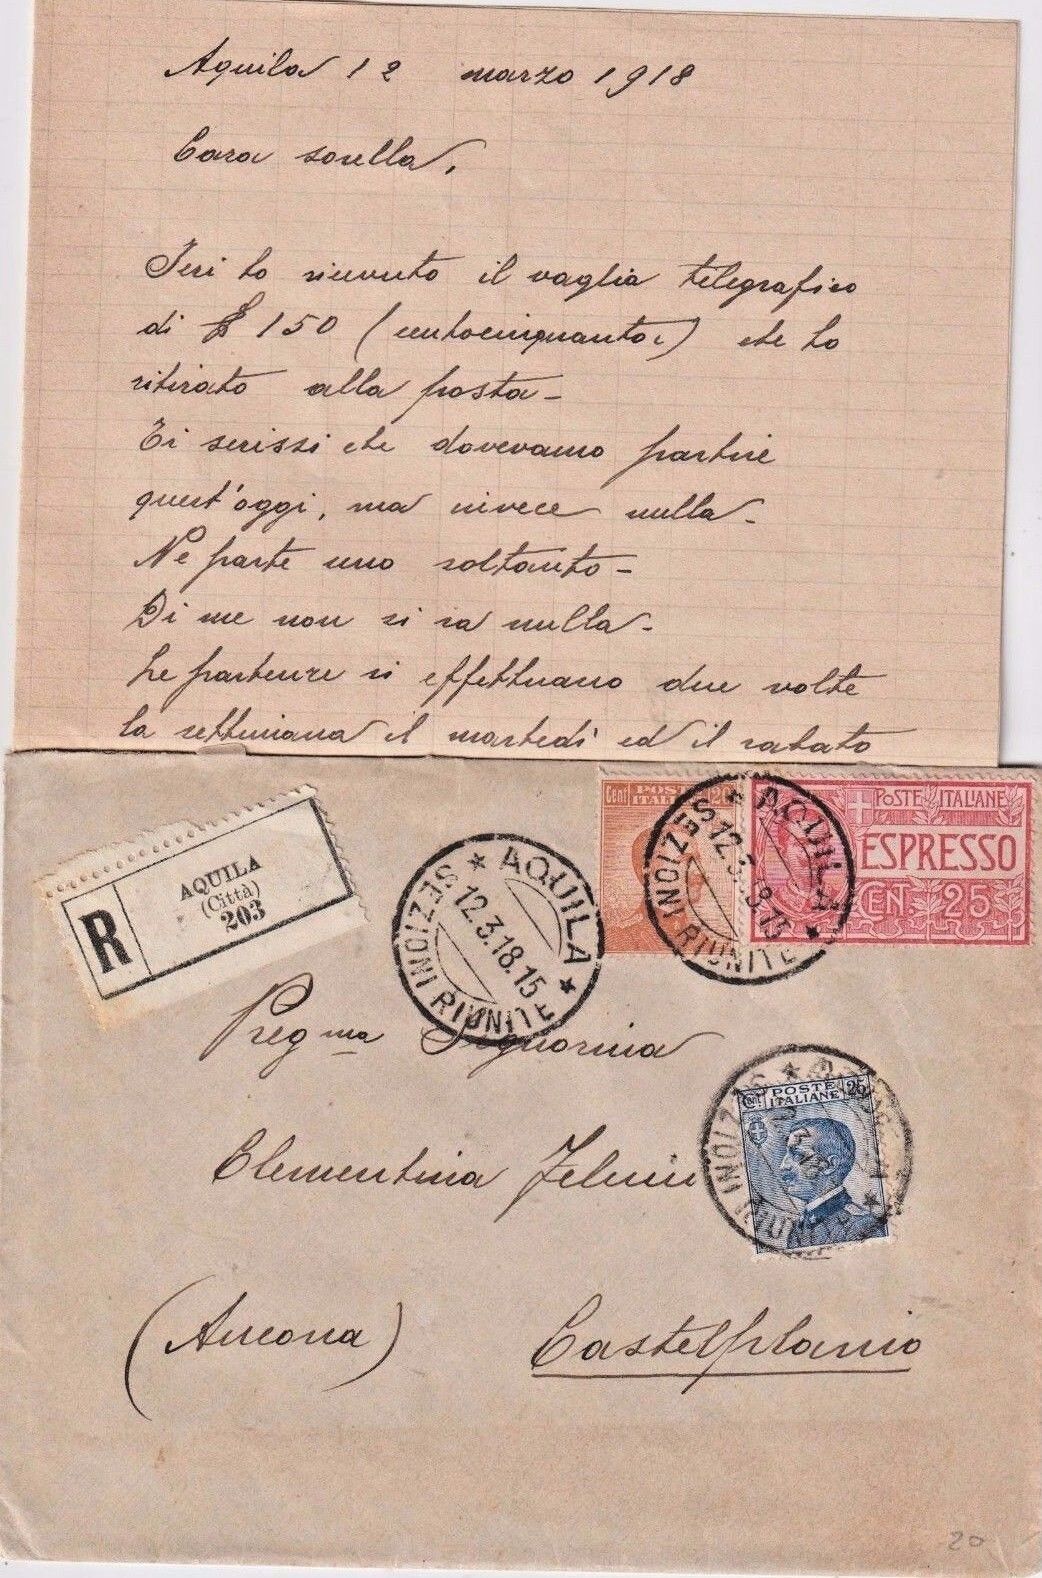 Aquila 12 marzo 1918
Cara sorella,
Ieri ho ricevuto il vaglia telegrafico
di £ 150 (centocinquanta) che ho
ritirato alla posta-
Ti scrissi che dovevamo partire
quest'oggi, ma invece nulla-
Ne parte uno soltanto-
Di me non si sa nulla-
Le partenze si effettuano due volte
la settimana il martedì ed il sabato
R
AQUILA
(Città)
203
AQUILA
12.3.18.15
SEZIONI RIUNITE
Cent POSTE 20
ITALIANE
AQUILA
12.3.18.15
SEZIONI RIUNITE
POSTE ITALIANE
ESPRESSO
CENT. 25
Pregma Signorina
CENT POSTE 25
ITALIANE
SEZIONI RIUNITE
Clementina
(Ancona)
Castelplanio
20